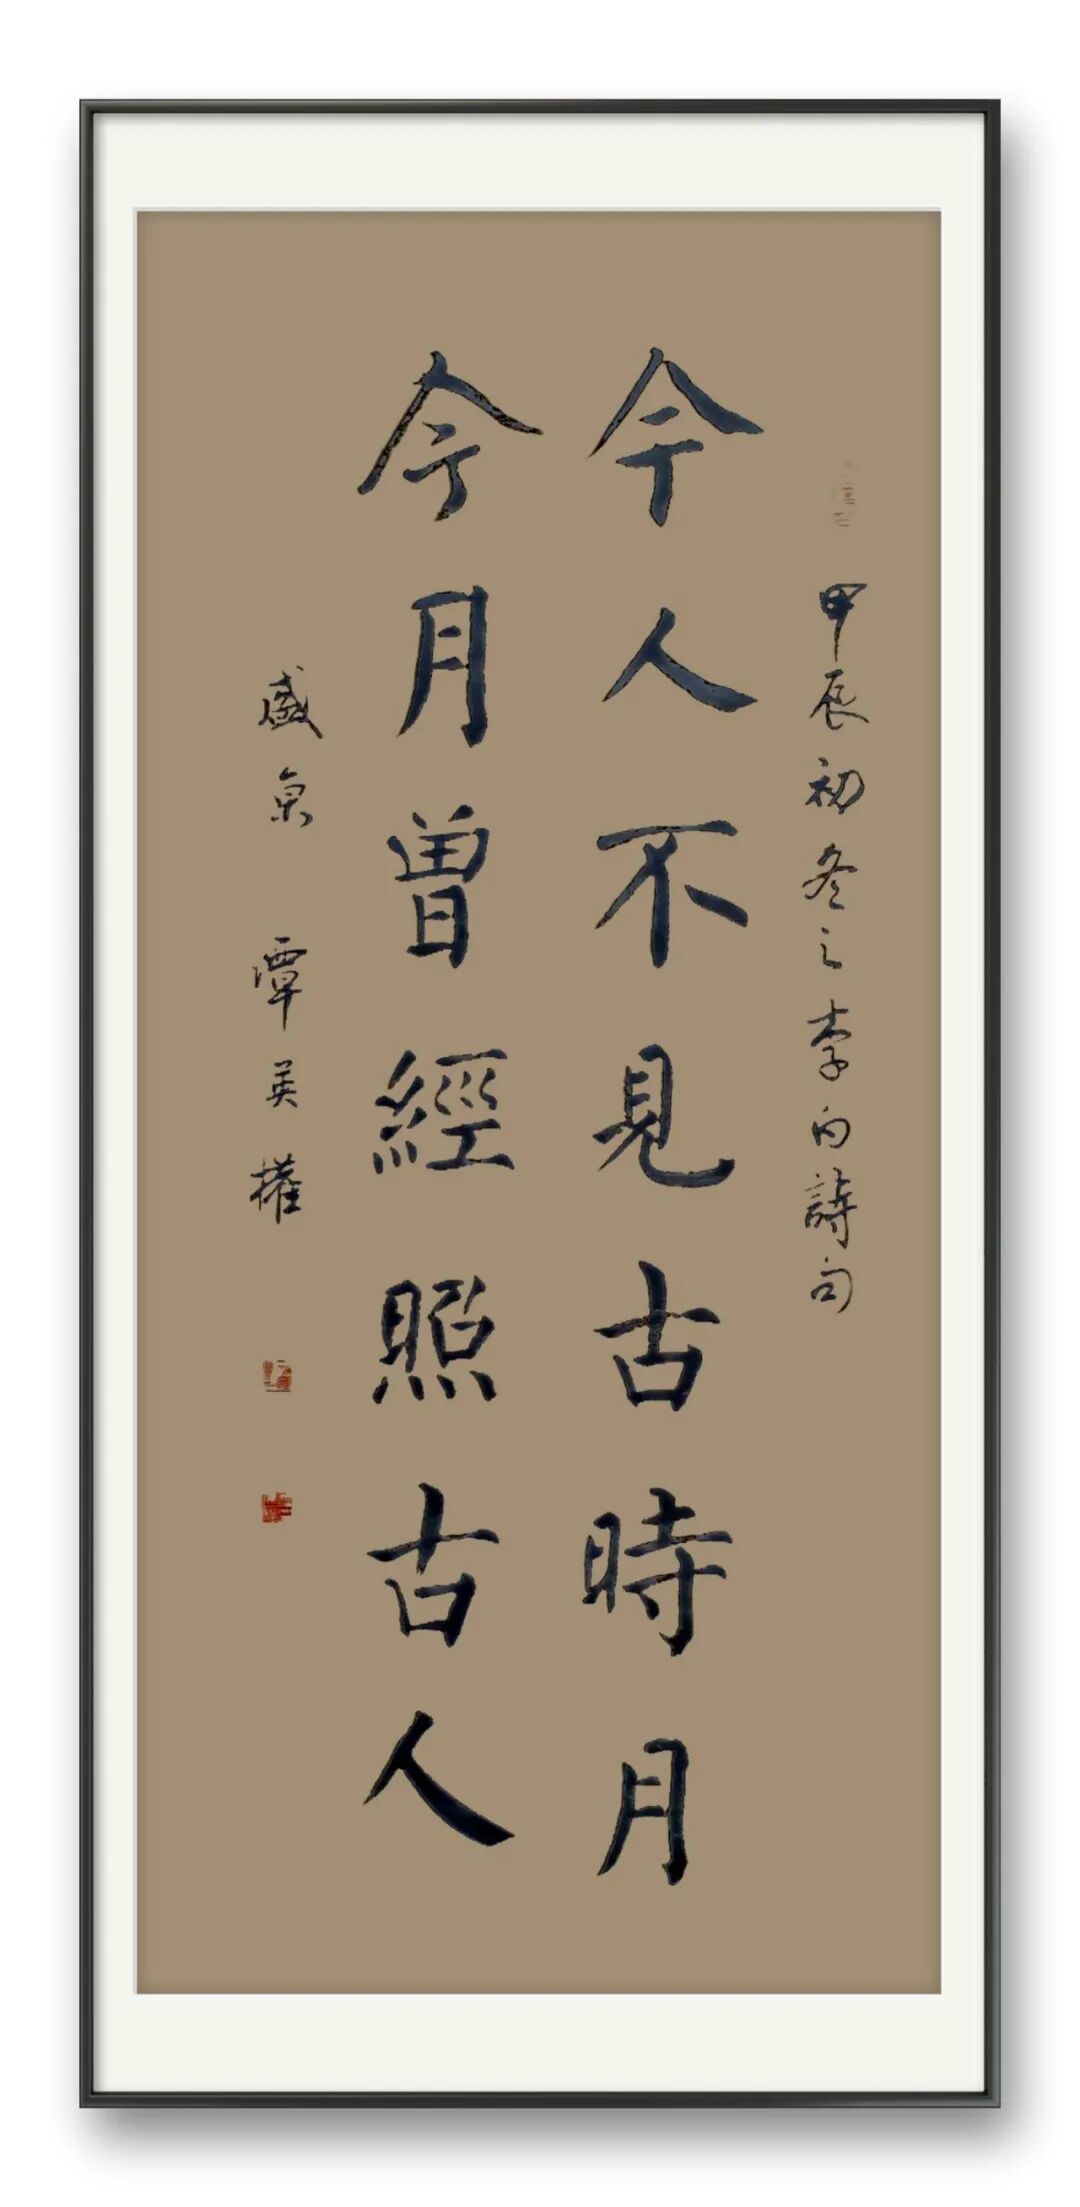 甲辰初冬之李白詩句
今人不見古時月
今月曾經照古人
盛京 譚英權